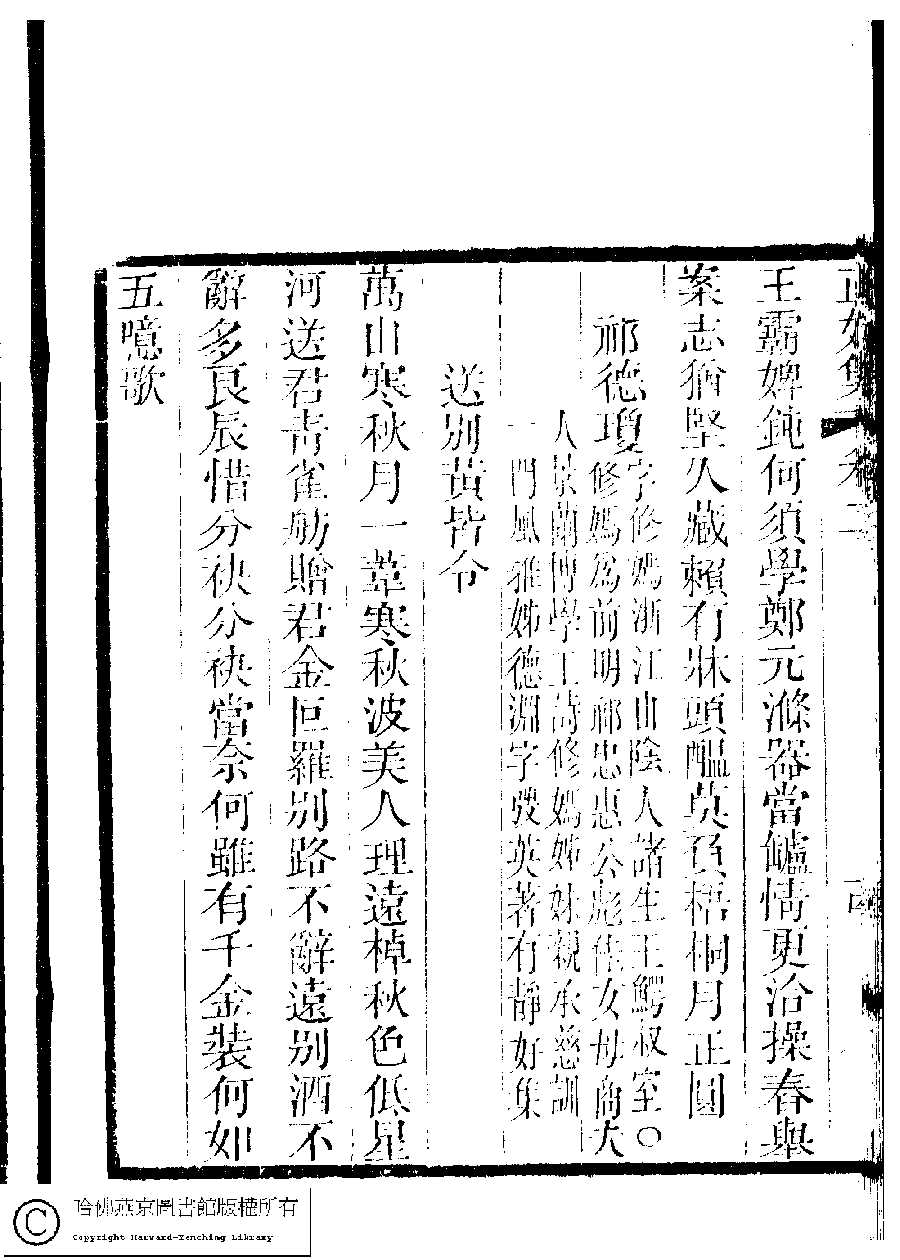 正始集 卷二
王霸婢鈍何須學鄭元滌器當鑪情更洽操舂舉
案志猶堅久藏賴有牀頭醞莫負梧桐月正圓
祁德瓊
字修嫣浙江山陰人諸生王鰐叔室○
修嫣為前明祁忠惠公彪佳女母商夫
人景蘭博學工詩修嫣姊妹親承慈訓
一門風雅姊德淵字弢英著有靜好集
送別黃皆令
萬山寒秋月一葦寒秋波美人理遠棹秋色低星
河送君青雀舫贈君金叵羅別路不辭遠別酒不
辭多良辰惜分袂分袂當奈何雖有千金裝何如
五噫歌
哈佛燕京圖書館版權所有
Copyright Harvard-Yenching Library